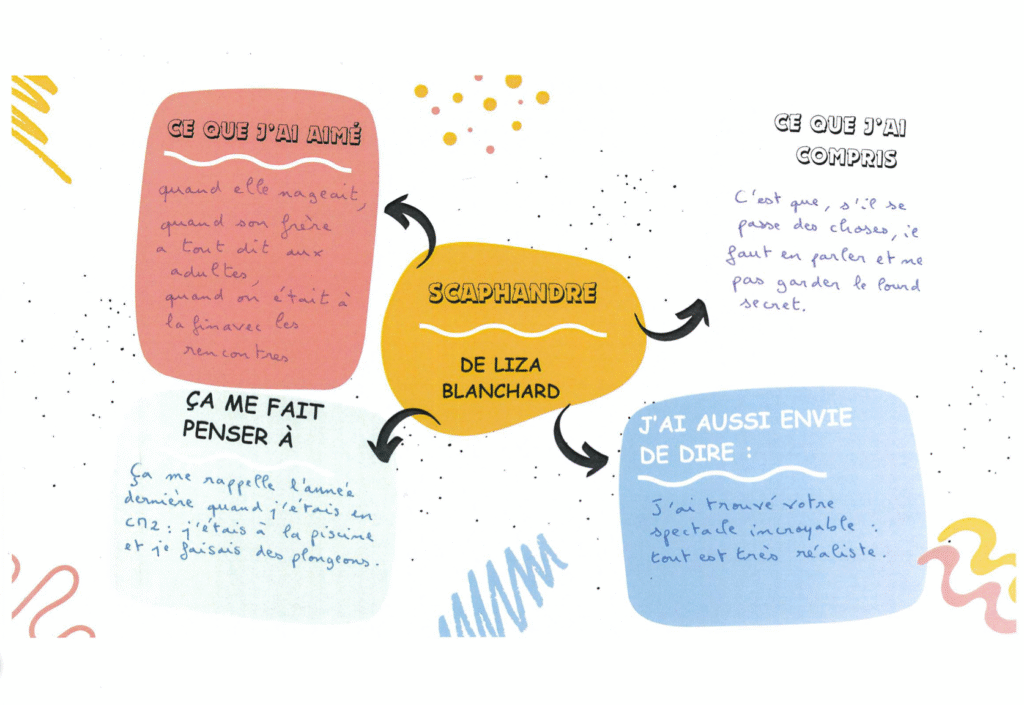 CE QUE J'AI AIMÉ
quand elle nageait,
quand son frère
a tout dit aux
adultes,
quand on était à
la fin avec les
rencontres
CE QUE J'AI
COMPRIS
C'est que, s'il se
passe des choses, il
faut en parler et ne
pas garder le lourd
secret.
SCAPHANDRE
DE LIZA
BLANCHARD
ÇA ME FAIT
PENSER À
Ça me rappelle l'année
dernière quand j'étais en
CM2 : j'étais à la piscine
et je faisais des plongeons.
J'AI AUSSI ENVIE
DE DIRE :
J'ai trouvé votre
spectacle incroyable :
tout est très réaliste.